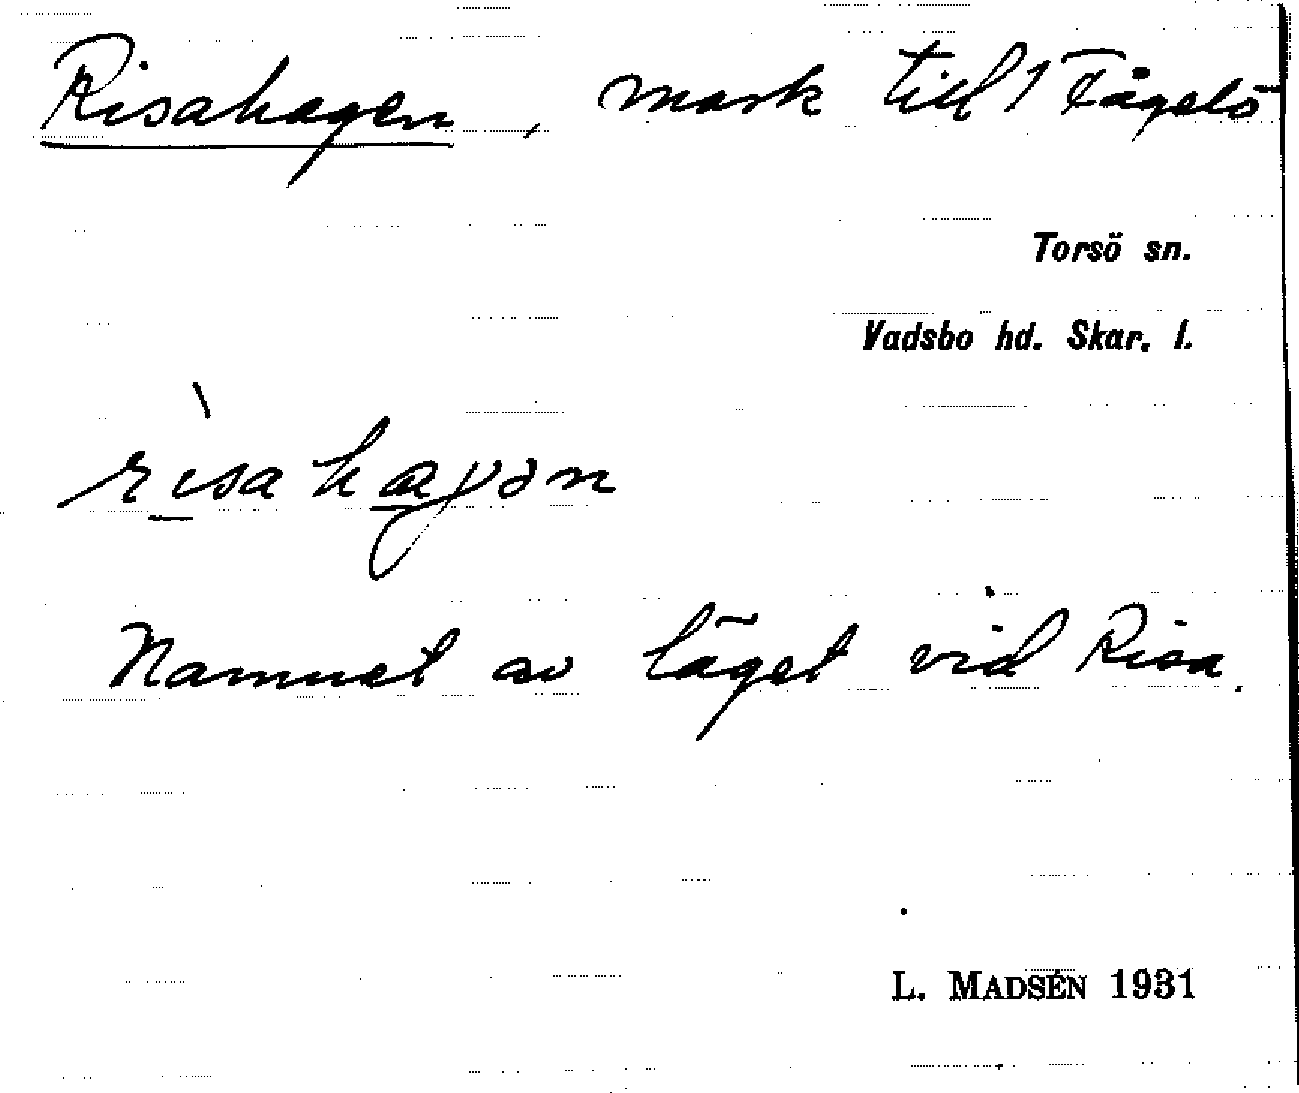 Risahagen, mark till 1 Fågelö
Torsö sn.
Vadsbo hd. Skar. l.
rìsahaγən
Namnet av läget vid Risa.
L. MADSÉN 1931